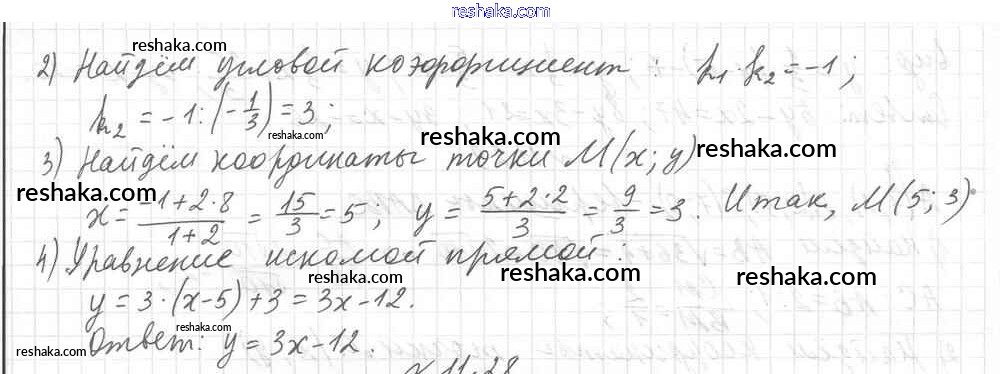 reshaka.com
2) Найдём угловой коэффициент: k₁·k₂ = -1;
k₂ = -1 : (-1/3) = 3;
3) Найдём координаты точки M(x; y)
x = (-1+2·8)/(1+2) = 15/3 = 5; y = (5+2·2)/3 = 9/3 = 3. Итак, M(5; 3)
4) Уравнение искомой прямой:
y = 3·(x-5)+3 = 3x-12.
Ответ: y = 3x-12.
№ 11.28
reshaka.com
reshaka.com
reshaka.com
reshaka.com
reshaka.com
reshaka.com
reshaka.com
reshaka.com
reshaka.com
reshaka.com
reshaka.com
reshaka.com